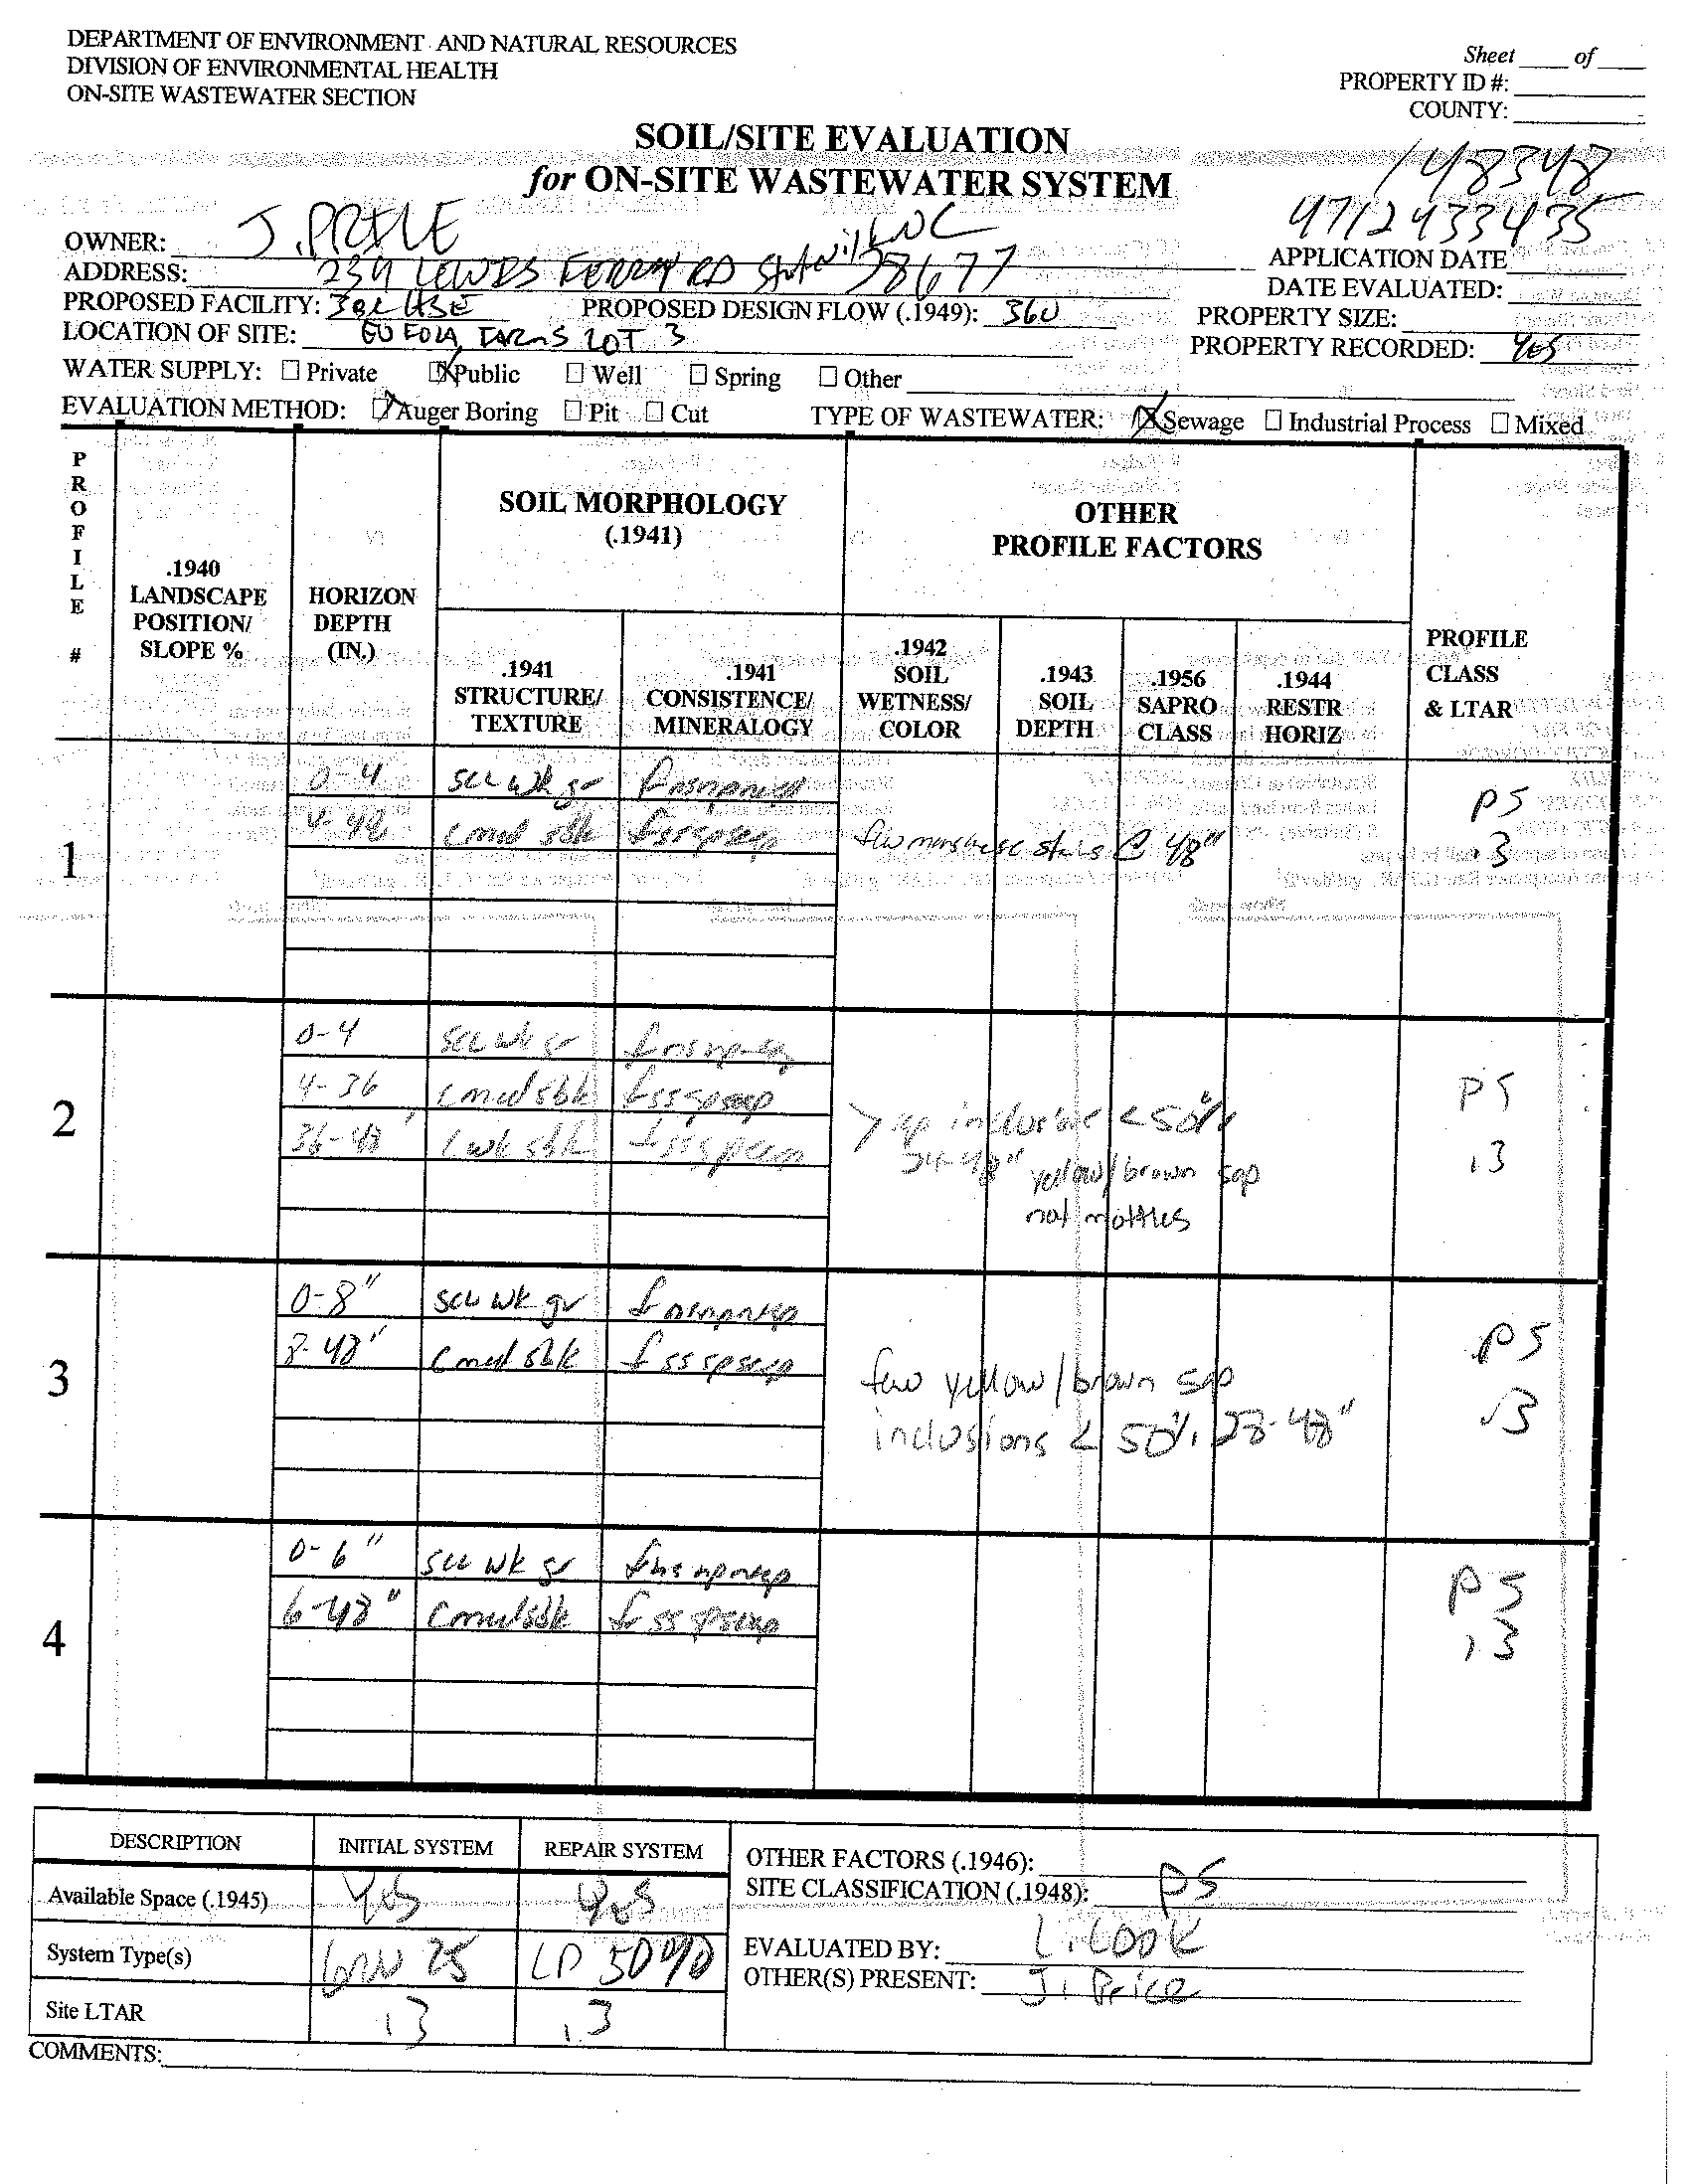 DEPARTMENT OF ENVIRONMENT AND NATURAL RESOURCES
DIVISION OF ENVIRONMENTAL HEALTH
ON-SITE WASTEWATER SECTION
Sheet ____ of ____
PROPERTY ID #:
COUNTY:
SOIL/SITE EVALUATION
for ON-SITE WASTEWATER SYSTEM
148348
4712433435
OWNER: J. PRICE
ADDRESS: 239 LEWIS FERRY RD NC 28677
PROPOSED FACILITY: 3BR HSE PROPOSED DESIGN FLOW (.1949): 360
LOCATION OF SITE: EUFOLA FARMS LOT 3
APPLICATION DATE
DATE EVALUATED:
PROPERTY SIZE:
PROPERTY RECORDED: Yes
WATER SUPPLY: Private Public Well Spring Other
EVALUATION METHOD: Auger Boring Pit Cut TYPE OF WASTEWATER: Sewage Industrial Process Mixed
PROFILE #
.1940 LANDSCAPE POSITION/ SLOPE %
HORIZON DEPTH (IN.)
SOIL MORPHOLOGY (.1941)
OTHER PROFILE FACTORS
.1941 STRUCTURE/ TEXTURE
.1941 CONSISTENCE/ MINERALOGY
.1942 SOIL WETNESS/ COLOR
.1943 SOIL DEPTH
.1956 SAPRO CLASS
.1944 RESTR HORIZ
PROFILE CLASS & LTAR
1
0-4 scl wk gr
4-48 c mod sbk
few manganese stains @ 48"
PS
.3
2
0-4 scl wk gr
4-36 c mod sbk
36-48 l wk sbk
sap inclusions <50%
24-48" yellow/brown sap
not mottles
PS
.3
3
0-8" scl wk gr
8-48" c mod sbk
few yellow/brown sap
inclusions < 50% 28-48"
PS
.3
4
0-6" scl wk gr
6-48" c mod sbk
PS
.3
DESCRIPTION INITIAL SYSTEM REPAIR SYSTEM
Available Space (.1945) Yes Yes
System Type(s) 25 50%
Site LTAR .3 .3
OTHER FACTORS (.1946):
SITE CLASSIFICATION (.1948): PS
EVALUATED BY: L. Cook
OTHER(S) PRESENT: J. Price
COMMENTS: